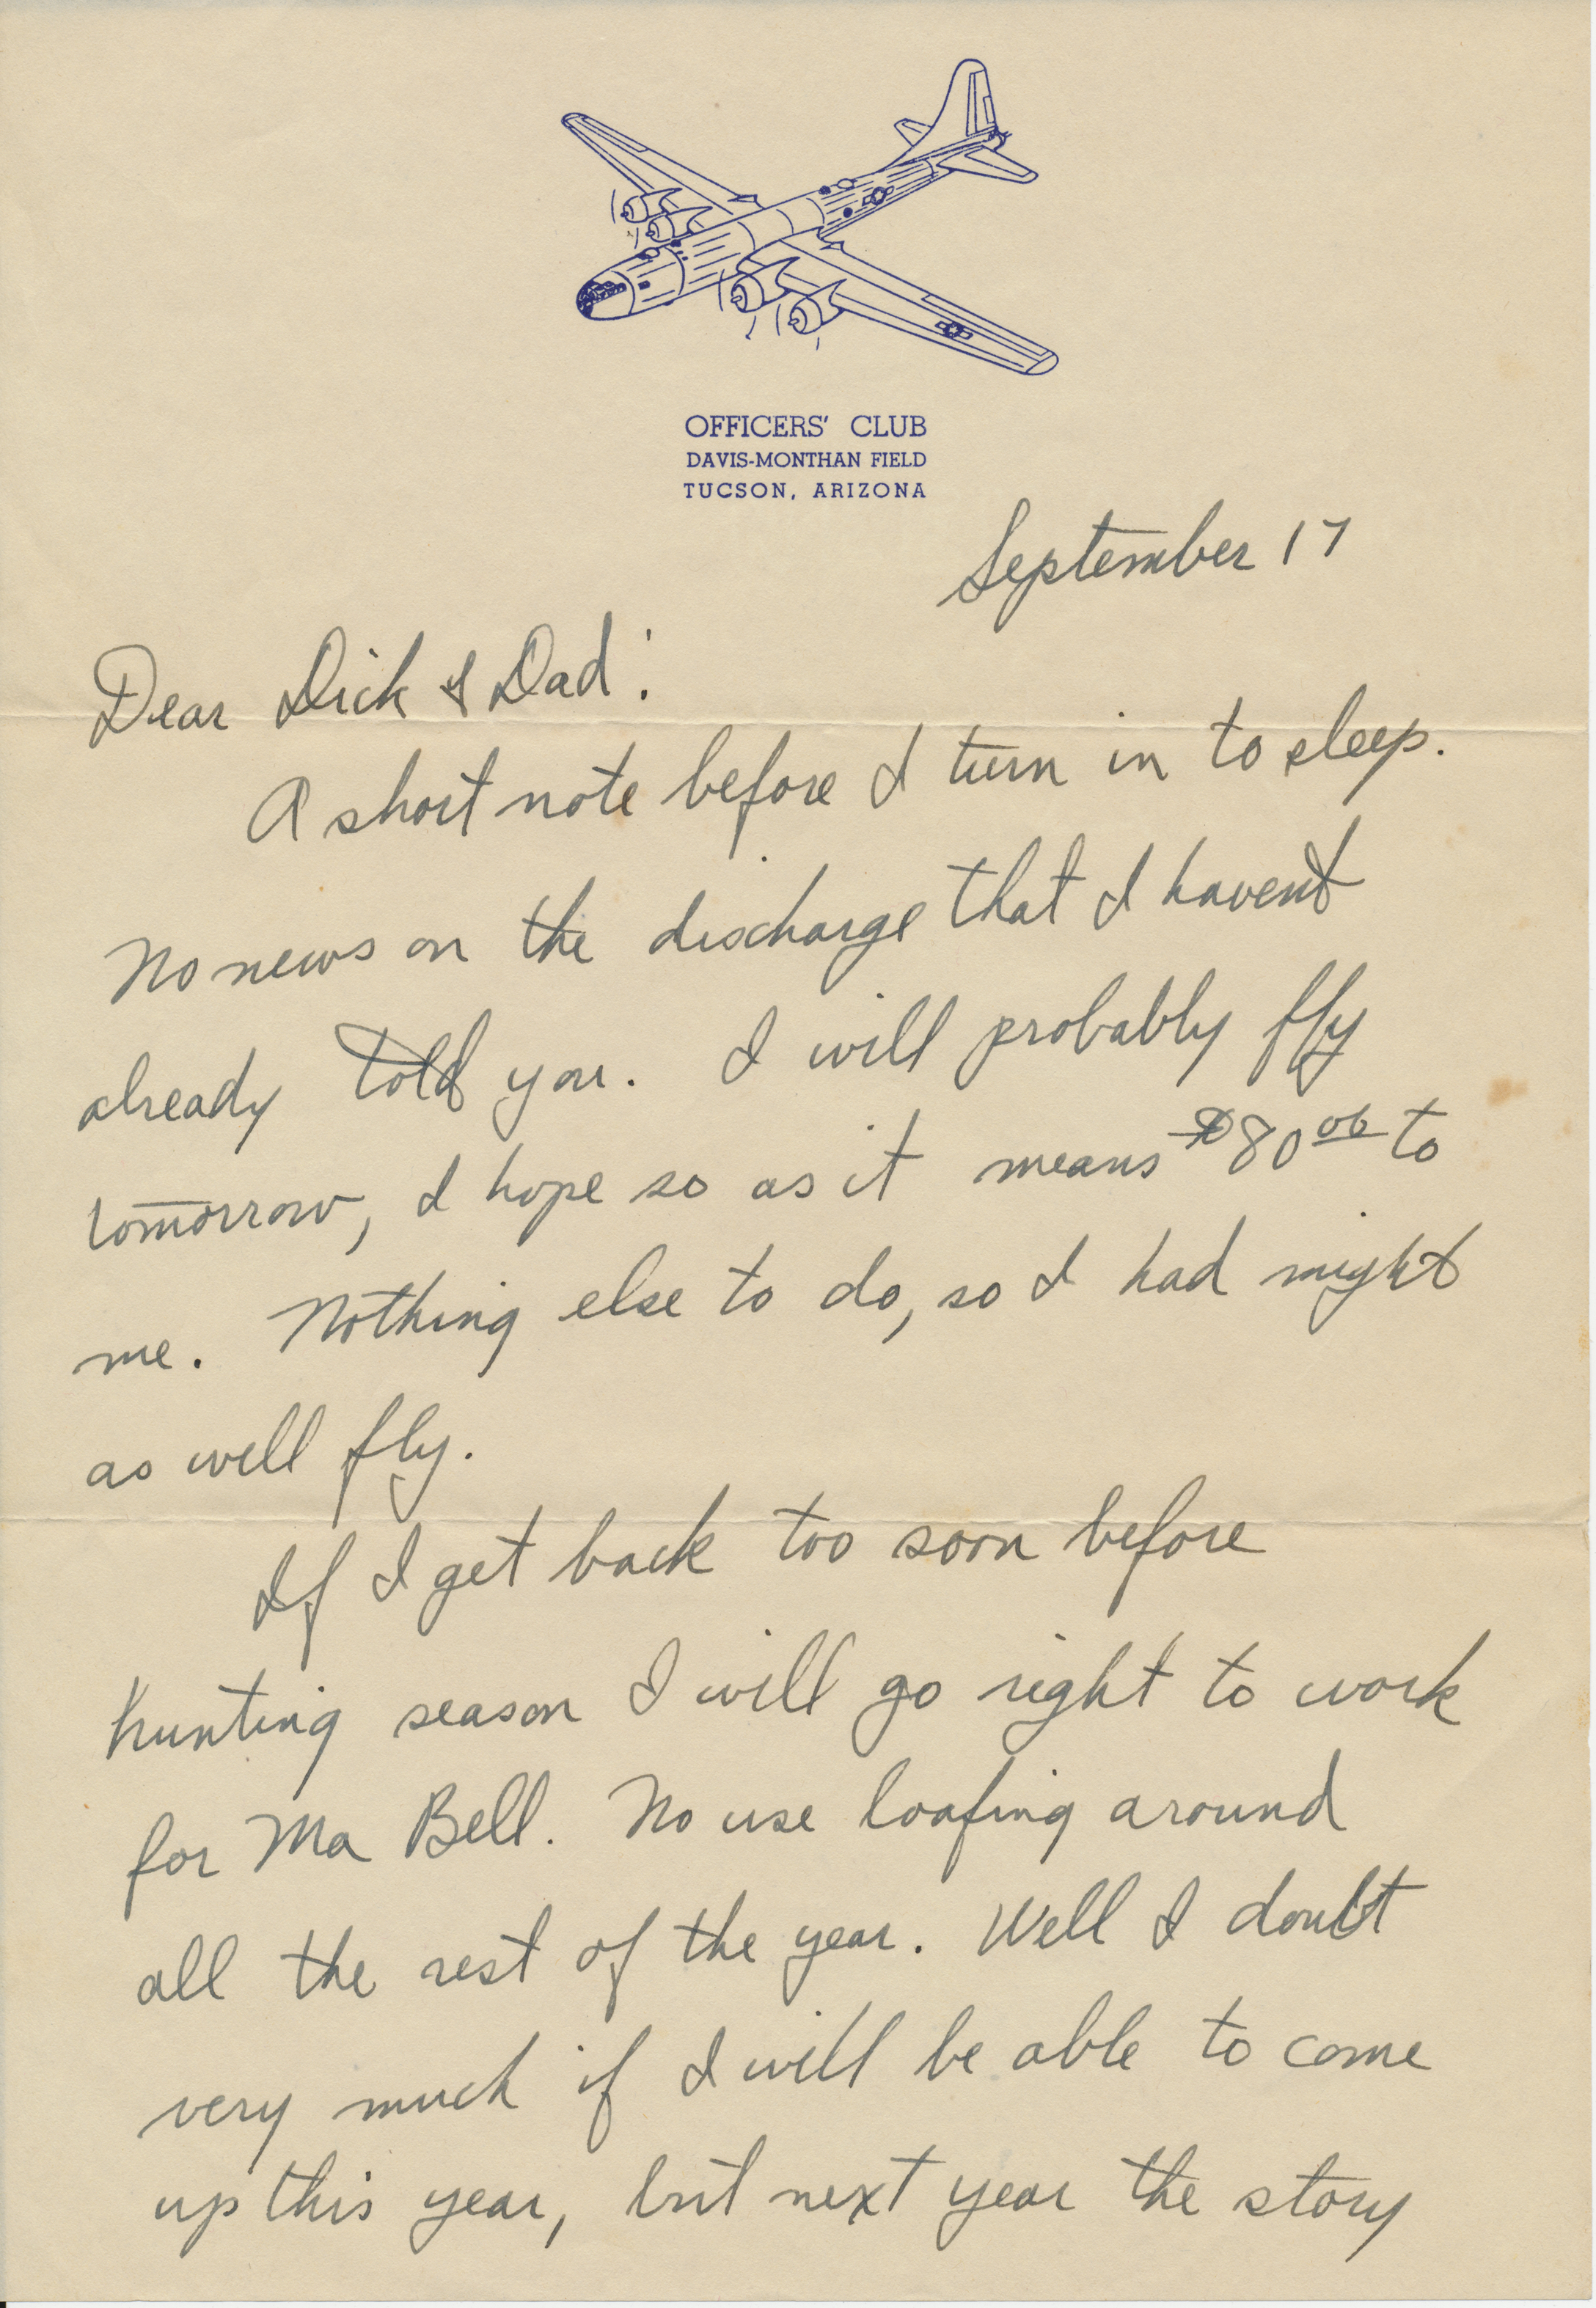 OFFICERS' CLUB
DAVIS-MONTHAN FIELD
TUCSON, ARIZONA
September 17
Dear Dick & Dad:
A short note before I turn in to sleep.
No news on the discharge that I havent
already told you. I will probably fly
tomorrow, I hope so as it means $80.00 to
me. Nothing else to do, so I had might
as well fly.
If I get back too soon before
hunting season I will go right to work
for Ma Bell. No use loafing around
all the rest of the year. Well I doubt
very much if I will be able to come
up this year, but next year the story